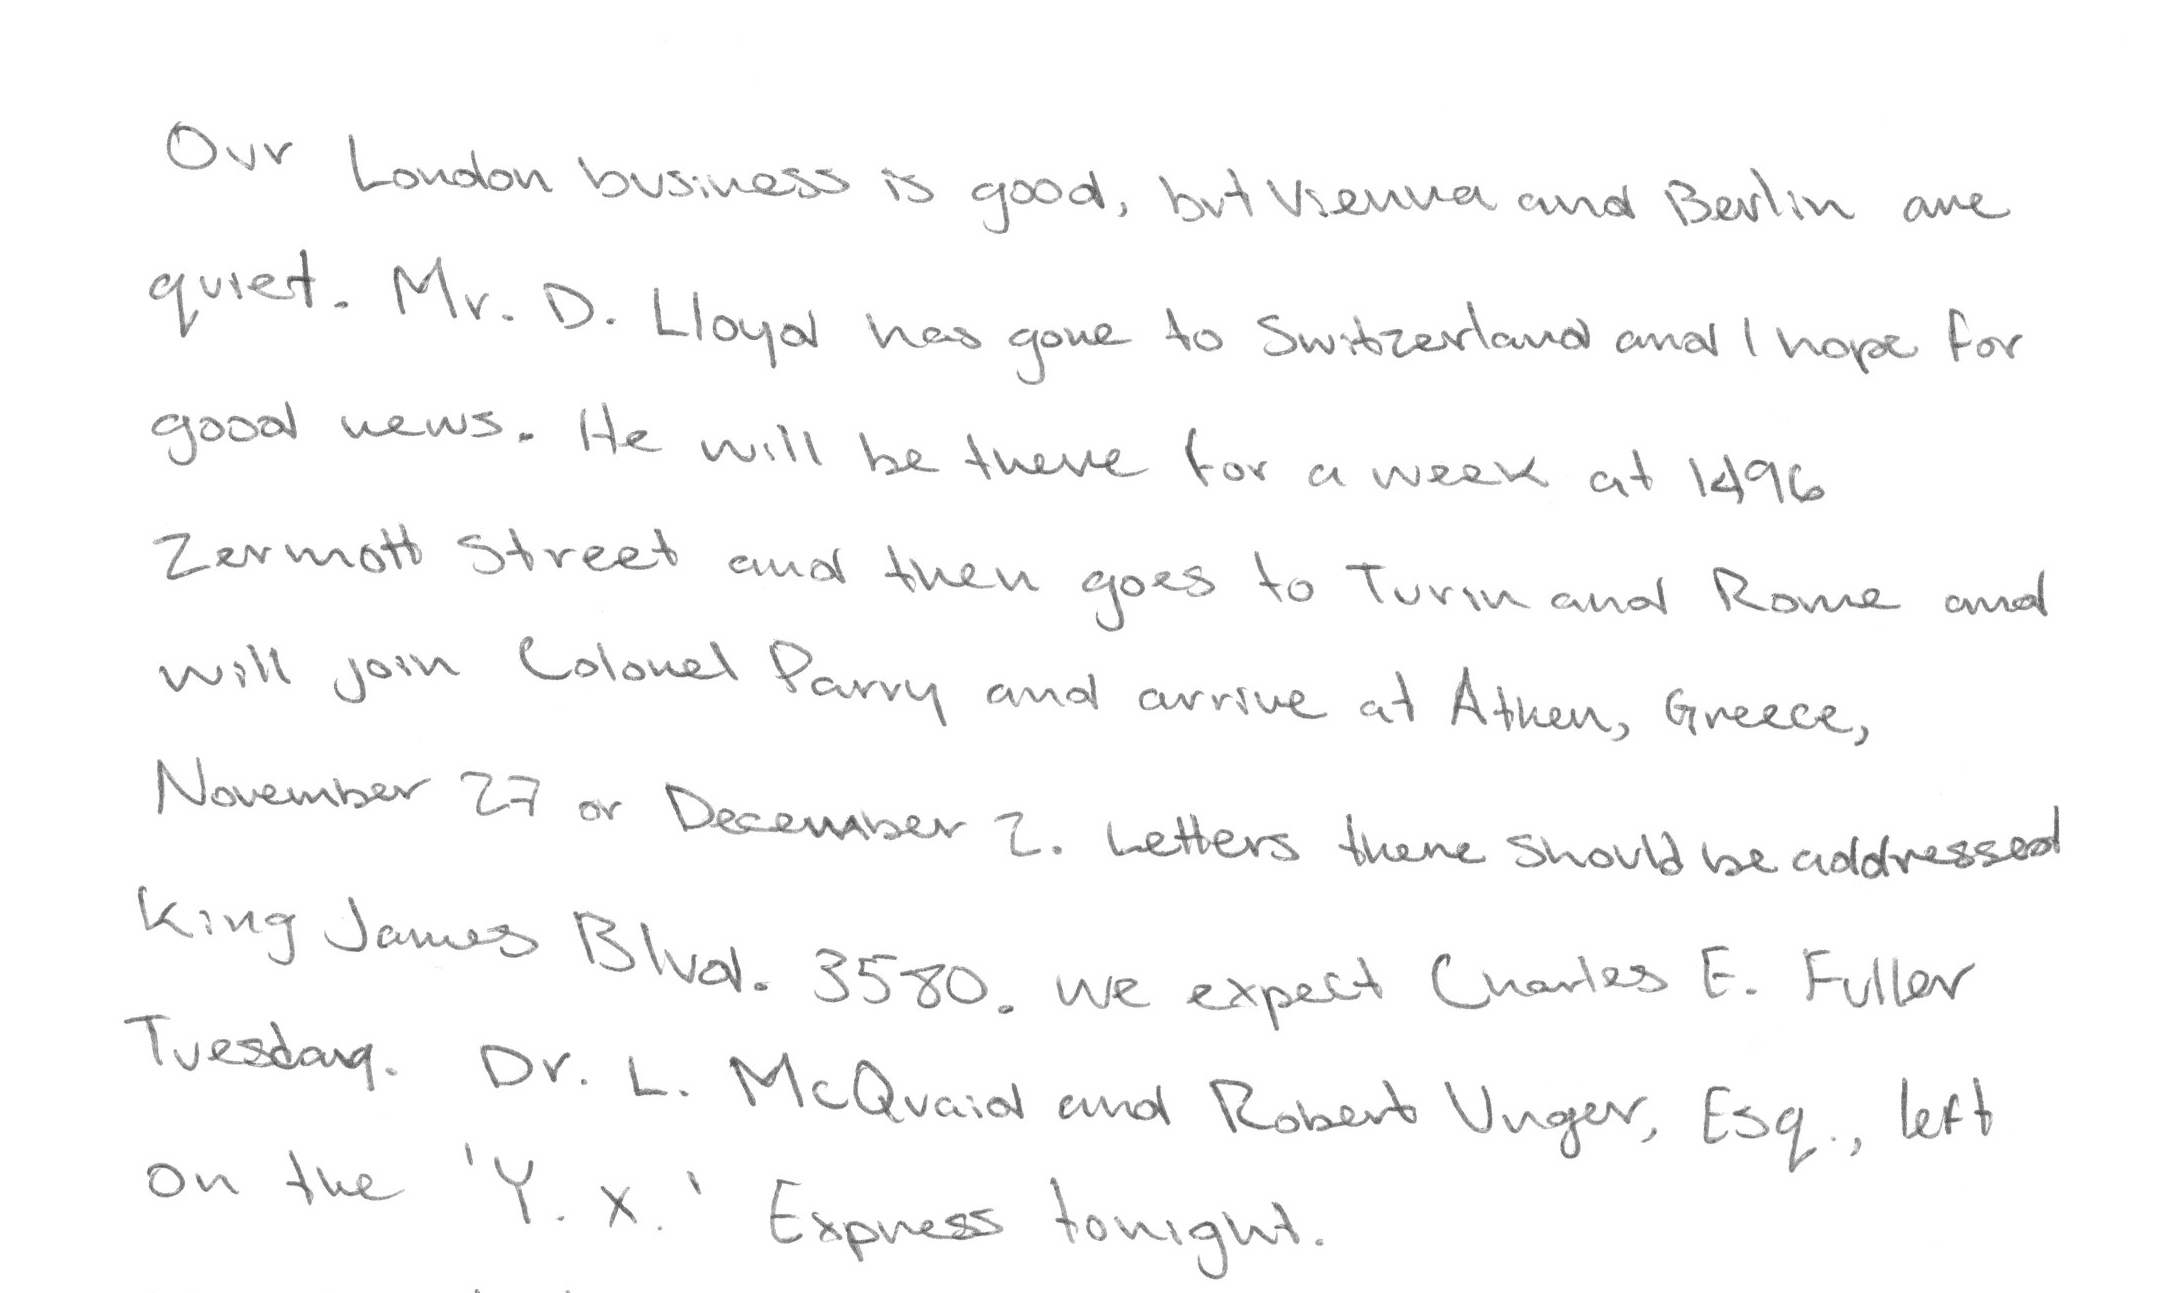 Our London business is good, but Vienna and Berlin are
quiet. Mr. D. Lloyd has gone to Switzerland and I hope for
good news. He will be there for a week at 1496
Zermott Street and then goes to Turin and Rome and
will join Colonel Parry and arrive at Athen, Greece,
November 27 or December 2. Letters there should be addressed
King James Blvd. 3580. We expect Charles E. Fuller
Tuesday. Dr. L. McQuaid and Robert Unger, Esq., left
on the 'Y. X.' Express tonight.